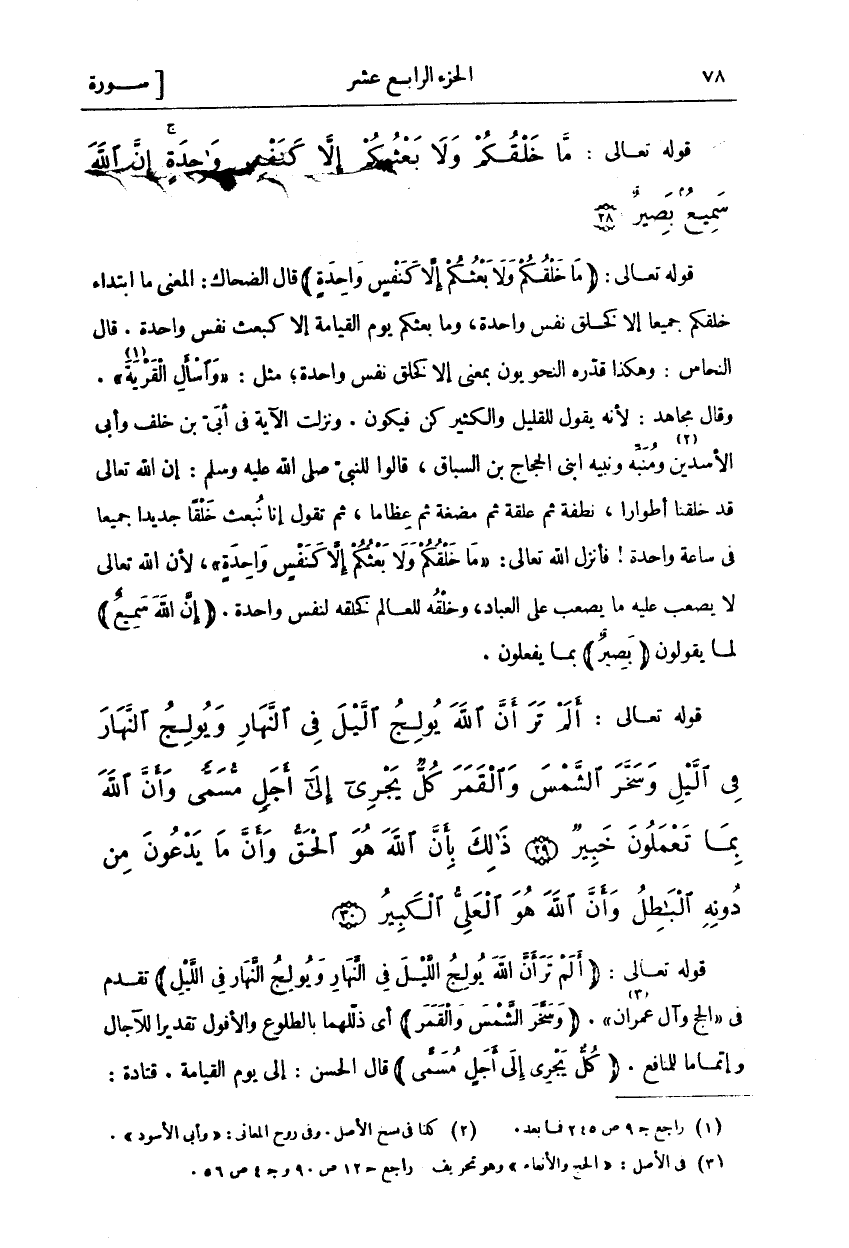 ٧٨ الجزء الرابع عشر [ سورة
قوله تعالى : مَّا خَلْقُكُمْ وَلَا بَعْثُكُمْ إِلَّا كَنَفْسٍ وَٰحِدَةٍ ۚ إِنَّ ٱللَّهَ
سَمِيعٌۢ بَصِيرٌ ﴿٢٨﴾
قوله تعالى : ﴿ مَا خَلْقُكُمْ وَلَا بَعْثُكُمْ إِلَّا كَنَفْسٍ وَاحِدَةٍ ﴾ قال الضحاك : المعنى ما ابتداء
خلقكم جميعا إلا كخلق نفس واحدة ، وما بعثكم يوم القيامة إلا كبعث نفس واحدة . قال
النحاس : وهكذا قدّره النحويون بمعنى إلا كخلق نفس واحدة ؛ مثل : «وَٱسْأَلِ الْقَرْيَةَ» (١) .
وقال مجاهد : لأنه يقول للقليل والكثير كن فيكون . ونزلت الآية فى أُبَىّ بن خلف وأبى
الأسدين (٢) ومُنَبِّه ونبيه ابنى الحجاج بن السباق ، قالوا للنبىّ صلى الله عليه وسلم : إن الله تعالى
قد خلقنا أطوارا ، نطفة ثم علقة ثم مضغة ثم عظاما ، ثم تقول إنا نُبعث خَلْقًا جديدا جميعا
فى ساعة واحدة ! فأنزل الله تعالى : «مَا خَلْقُكُمْ وَلَا بَعْثُكُمْ إِلَّا كَنَفْسٍ وَاحِدَةٍ» ، لأن الله تعالى
لا يصعب عليه ما يصعب على العباد ، وخلْقُه للعالم كخلقه لنفس واحدة . ﴿ إِنَّ اللهَ سَمِيعٌ ﴾
لما يقولون ﴿ بَصِيرٌ ﴾ بما يفعلون .
قوله تعالى : أَلَمْ تَرَ أَنَّ ٱللَّهَ يُولِجُ ٱلَّيْلَ فِى ٱلنَّهَارِ وَيُولِجُ ٱلنَّهَارَ
فِى ٱلَّيْلِ وَسَخَّرَ ٱلشَّمْسَ وَٱلْقَمَرَ كُلٌّ يَجْرِىٓ إِلَىٰٓ أَجَلٍ مُّسَمًّى وَأَنَّ ٱللَّهَ
بِمَا تَعْمَلُونَ خَبِيرٌ ﴿٢٩﴾ ذَٰلِكَ بِأَنَّ ٱللَّهَ هُوَ ٱلْحَقُّ وَأَنَّ مَا يَدْعُونَ مِن
دُونِهِ ٱلْبَـٰطِلُ وَأَنَّ ٱللَّهَ هُوَ ٱلْعَلِىُّ ٱلْكَبِيرُ ﴿٣٠﴾
قوله تعالى : ﴿ أَلَمْ تَرَ أَنَّ اللهَ يُولِجُ اللَّيْلَ فِى النَّهَارِ وَيُولِجُ النَّهَارَ فِى اللَّيْلِ ﴾ تقدم
فى «الحج وآل عمران» (٣) . ﴿ وَسَخَّرَ الشَّمْسَ وَالْقَمَرَ ﴾ أى ذلّلهما بالطلوع والأفول تقديرا للآجال
وإتماما للنافع . ﴿ كُلٌّ يَجْرِى إِلَى أَجَلٍ مُسَمًّى ﴾ قال الحسن : إلى يوم القيامة . قتادة :
(١) راجع جـ ٩ ص ٢٤٥ فما بعد . (٢) كذا فى نسخ الأصل . وفى روح المعانى : «وأبى الأسود» .
(٣) فى الأصل : «الحج والأنعام» وهو تحريف راجع جـ ١٢ ص ٩٠ و جـ ٤ ص ٥٦ .